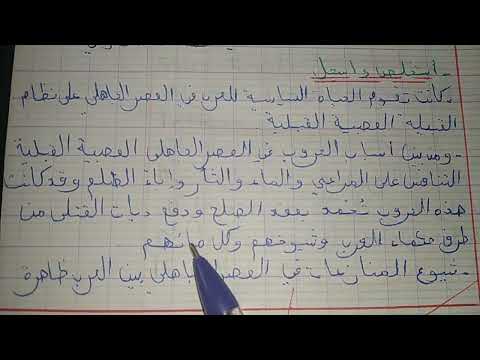 - أستخلص و أسجل
- كانت تقوم الحياة السياسية للعرب في العصر الجاهلي على نظام
القبيلة العصبية القبلية
- ومن أسباب الحروب في العصر الجاهلي العصبية القبلية
التنافس على المراعي والماء والثأر وإباءة الظلم وقد كانت
هذه الحروب تخمد بعقد الصلح ودفع ديات القتلى من
طرف حكماء العرب وشيوخهم وكل
- شيوع المنازعات في العصر الجاهلي بين العرب ظاهرة